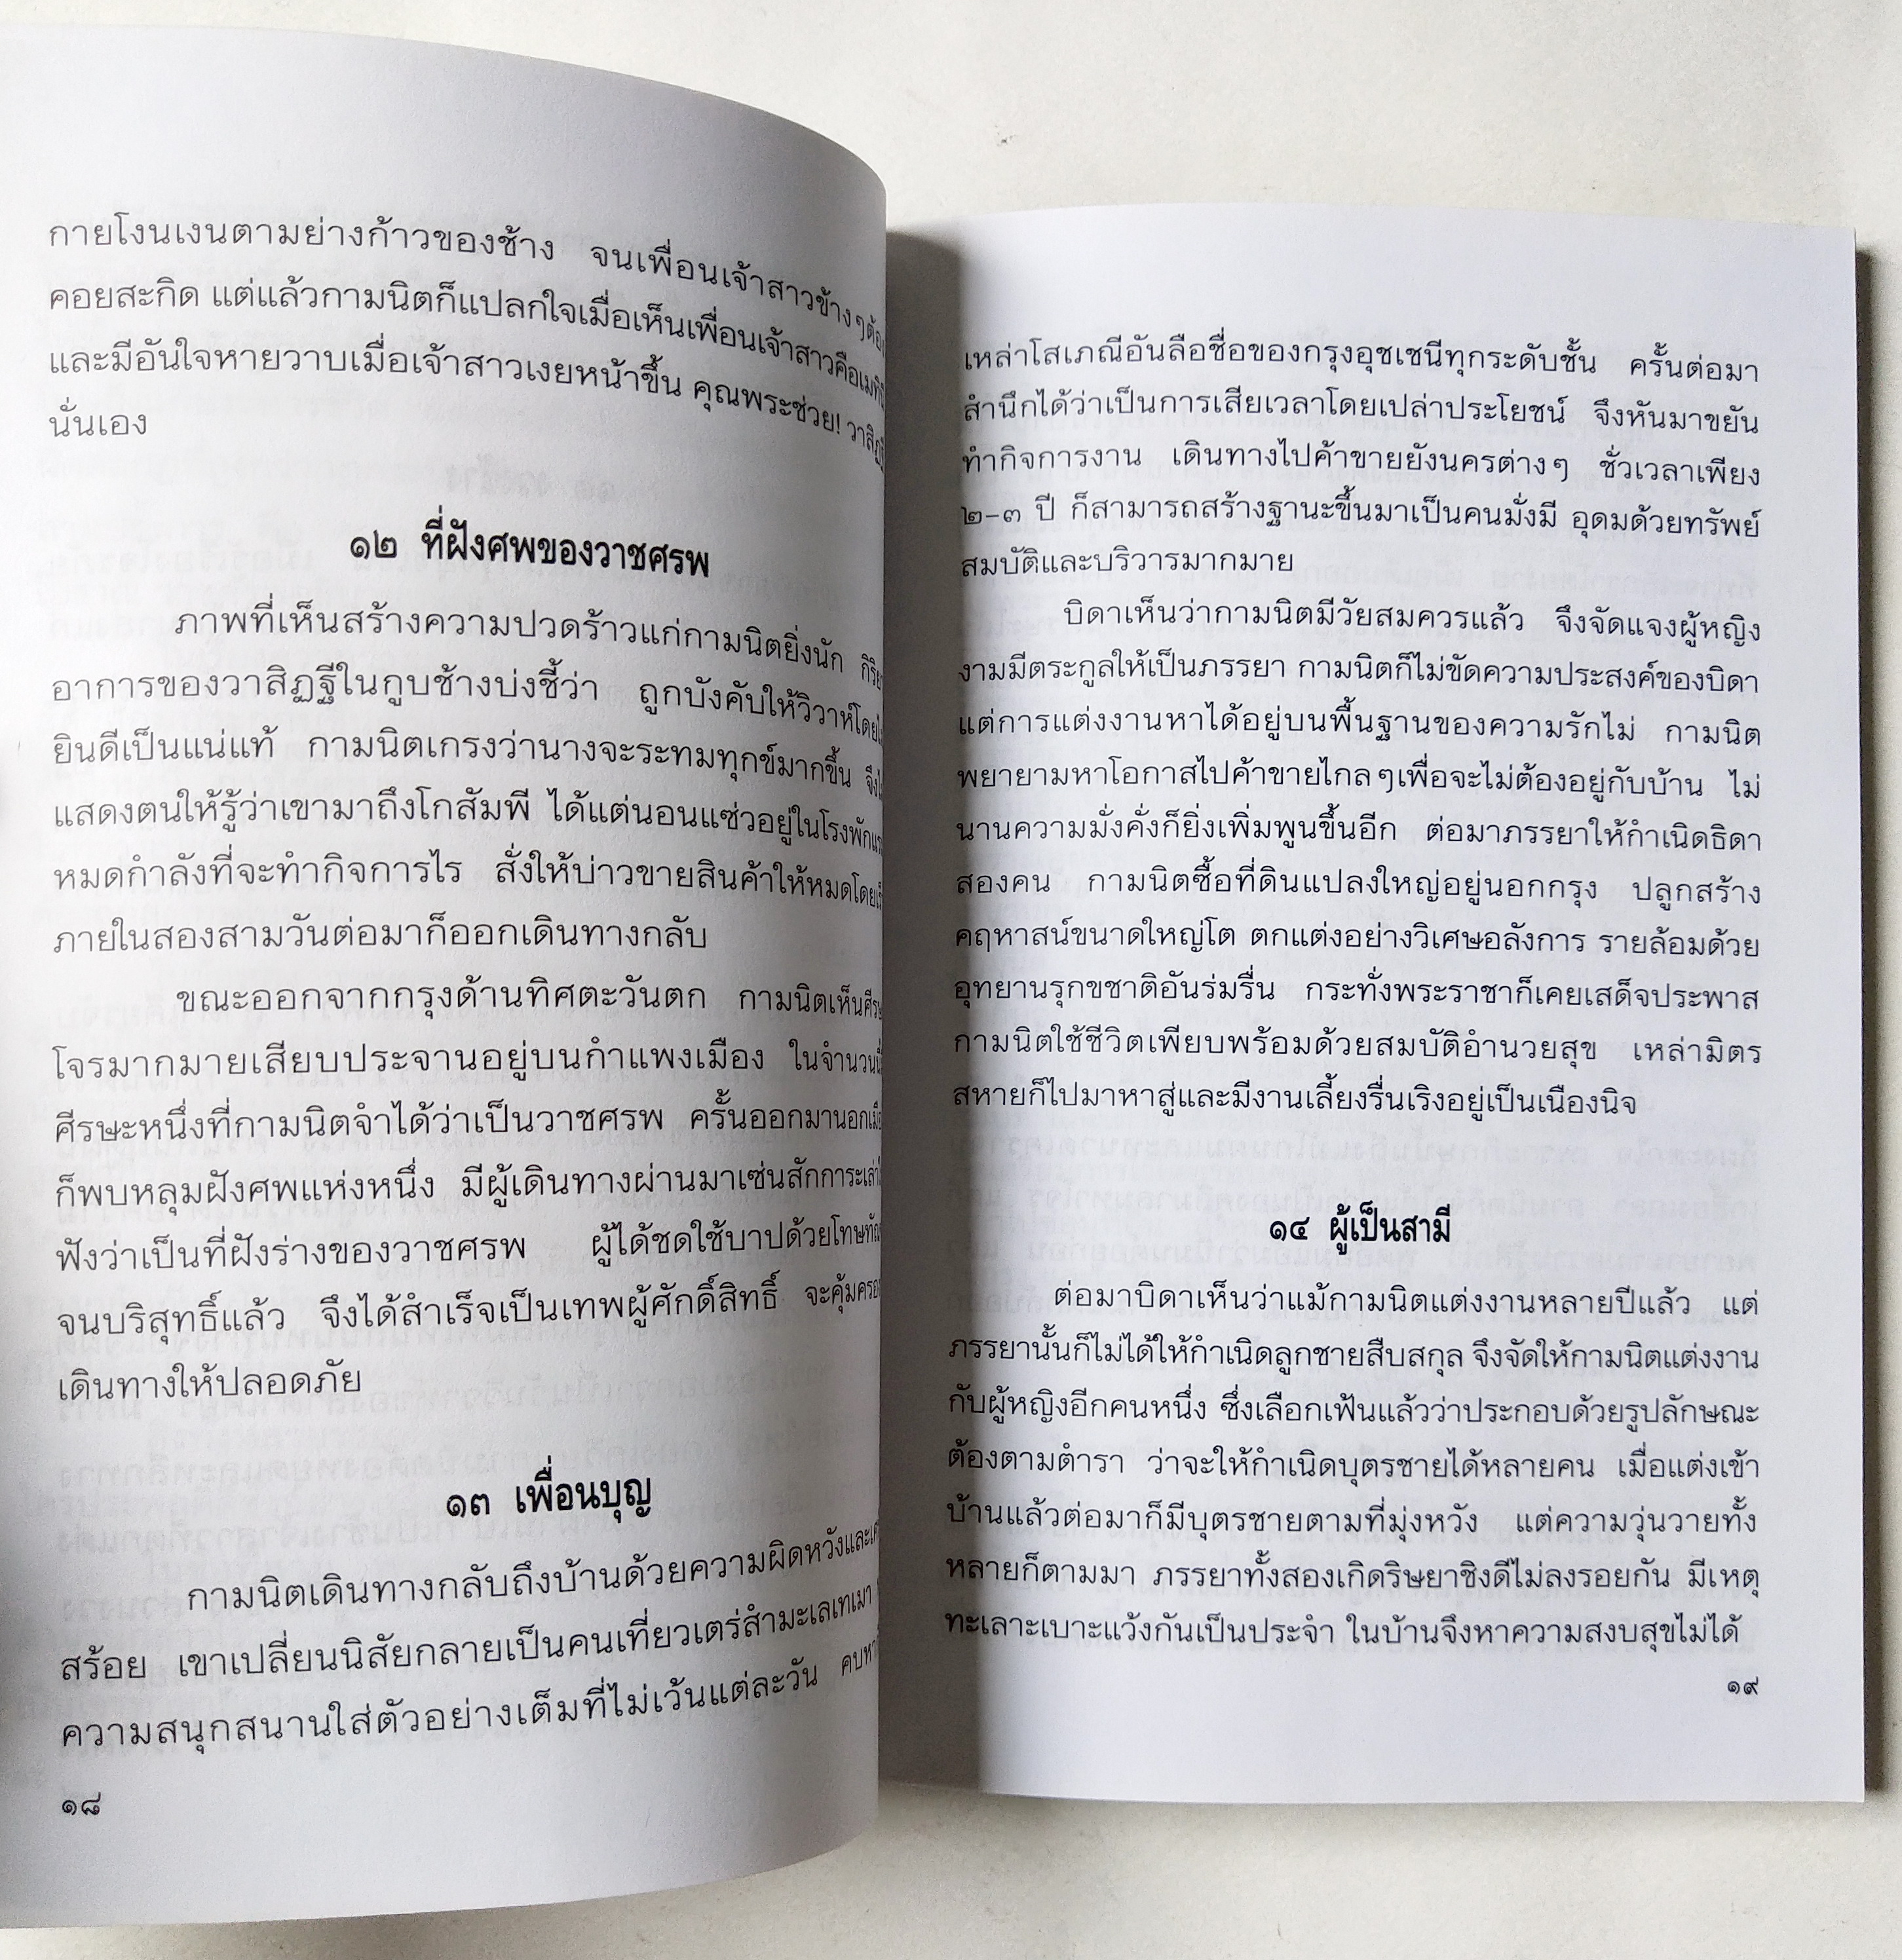 กายโงนเงนตามย่างก้าวของช้าง จนเพื่อนเจ้าสาวข้างๆต้อง
คอยสะกิด แต่แล้วกามนิตก็แปลกใจเมื่อเห็นเพื่อนเจ้าสาวคือ
และมีอันใจหายวาบเมื่อเจ้าสาวเงยหน้าขึ้น คุณพระช่วย!
นั่นเอง
๑๒ ที่ฝังศพของวาชศรพ
ภาพที่เห็นสร้างความปวดร้าวแก่กามนิตยิ่งนัก
อาการของวาสิฏฐีในกูบช้างบ่งชี้ว่า ถูกบังคับให้วิวาห์โดย
ยินดีเป็นแน่แท้ กามนิตเกรงว่านางจะระทมทุกข์มากขึ้น
แสดงตนให้รู้ว่าเขามาถึงโกสัมพี ได้แต่นอนแซ่วอยู่ในโรง
หมดกำลังที่จะทำกิจการไร สั่งให้บ่าวขายสินค้าให้หมดโดย
ภายในสองสามวันต่อมาก็ออกเดินทางกลับ
ขณะออกจากกรุงด้านทิศตะวันตก กามนิตเห็น
โจรมากมายเสียบประจานอยู่บนกำแพงเมือง ในจำนวน
ศีรษะหนึ่งที่กามนิตจำได้ว่าเป็นวาชศรพ ครั้นออกมานอก
ก็พบหลุมฝังศพแห่งหนึ่ง มีผู้เดินทางผ่านมาเซ่นสักการะ
ฟังว่าเป็นที่ฝังร่างของวาชศรพ ผู้ได้ชดใช้บาปด้วยโทษ
จนบริสุทธิ์แล้ว จึงได้สำเร็จเป็นเทพผู้ศักดิ์สิทธิ์ จะ
เดินทางให้ปลอดภัย
๑๓ เพื่อนบุญ
กามนิตเดินทางกลับถึงบ้านด้วยความผิดหวังและ
สร้อย เขาเปลี่ยนนิสัยกลายเป็นคนเที่ยวเตร่สำมะเลเทเมา
ความสนุกสนานใส่ตัวอย่างเต็มที่ไม่เว้นแต่ละวัน
๑๘
เหล่าโสเภณีอันลือชื่อของกรุงอุชเชนีทุกระดับชั้น ครั้นต่อมา
สำนึกได้ว่าเป็นการเสียเวลาโดยเปล่าประโยชน์ จึงหันมาขยัน
ทำกิจการงาน เดินทางไปค้าขายยังนครต่างๆ ชั่วเวลาเพียง
๒-๓ ปี ก็สามารถสร้างฐานะขึ้นมาเป็นคนมั่งมี อุดมด้วยทรัพย์
สมบัติและบริวารมากมาย
บิดาเห็นว่ากามนิตมีวัยสมควรแล้ว จึงจัดแจงผู้หญิง
งามมีตระกูลให้เป็นภรรยา กามนิตก็ไม่ขัดความประสงค์ของบิดา
แต่การแต่งงานหาได้อยู่บนพื้นฐานของความรักไม่ กามนิต
พยายามหาโอกาสไปค้าขายไกลๆเพื่อจะไม่ต้องอยู่กับบ้าน ไม่
นานความมั่งคั่งก็ยิ่งเพิ่มพูนขึ้นอีก ต่อมาภรรยาให้กำเนิดธิดา
สองคน กามนิตซื้อที่ดินแปลงใหญ่อยู่นอกกรุง ปลูกสร้าง
คฤหาสน์ขนาดใหญ่โต ตกแต่งอย่างวิเศษอลังการ รายล้อมด้วย
อุทยานรุกขชาติอันร่มรื่น กระทั่งพระราชาก็เคยเสด็จประพาส
กามนิตใช้ชีวิตเพียบพร้อมด้วยสมบัติอำนวยสุข เหล่ามิตร
สหายก็ไปมาหาสู่และมีงานเลี้ยงรื่นเริงอยู่เป็นเนืองนิจ
๑๔ ผู้เป็นสามี
ต่อมาบิดาเห็นว่าแม้กามนิตแต่งงานหลายปีแล้ว แต่
ภรรยานั้นก็ไม่ได้ให้กำเนิดลูกชายสืบสกุล จึงจัดให้กามนิตแต่งงาน
กับผู้หญิงอีกคนหนึ่ง ซึ่งเลือกเฟ้นแล้วว่าประกอบด้วยรูปลักษณะ
ต้องตามตำรา ว่าจะให้กำเนิดบุตรชายได้หลายคน เมื่อแต่งเข้า
บ้านแล้วต่อมาก็มีบุตรชายตามที่มุ่งหวัง แต่ความวุ่นวายทั้ง
หลายก็ตามมา ภรรยาทั้งสองเกิดริษยาชิงดีไม่ลงรอยกัน มีเหตุ
ทะเลาะเบาะแว้งกันเป็นประจำ ในบ้านจึงหาความสงบสุขไม่ได้
๑๙